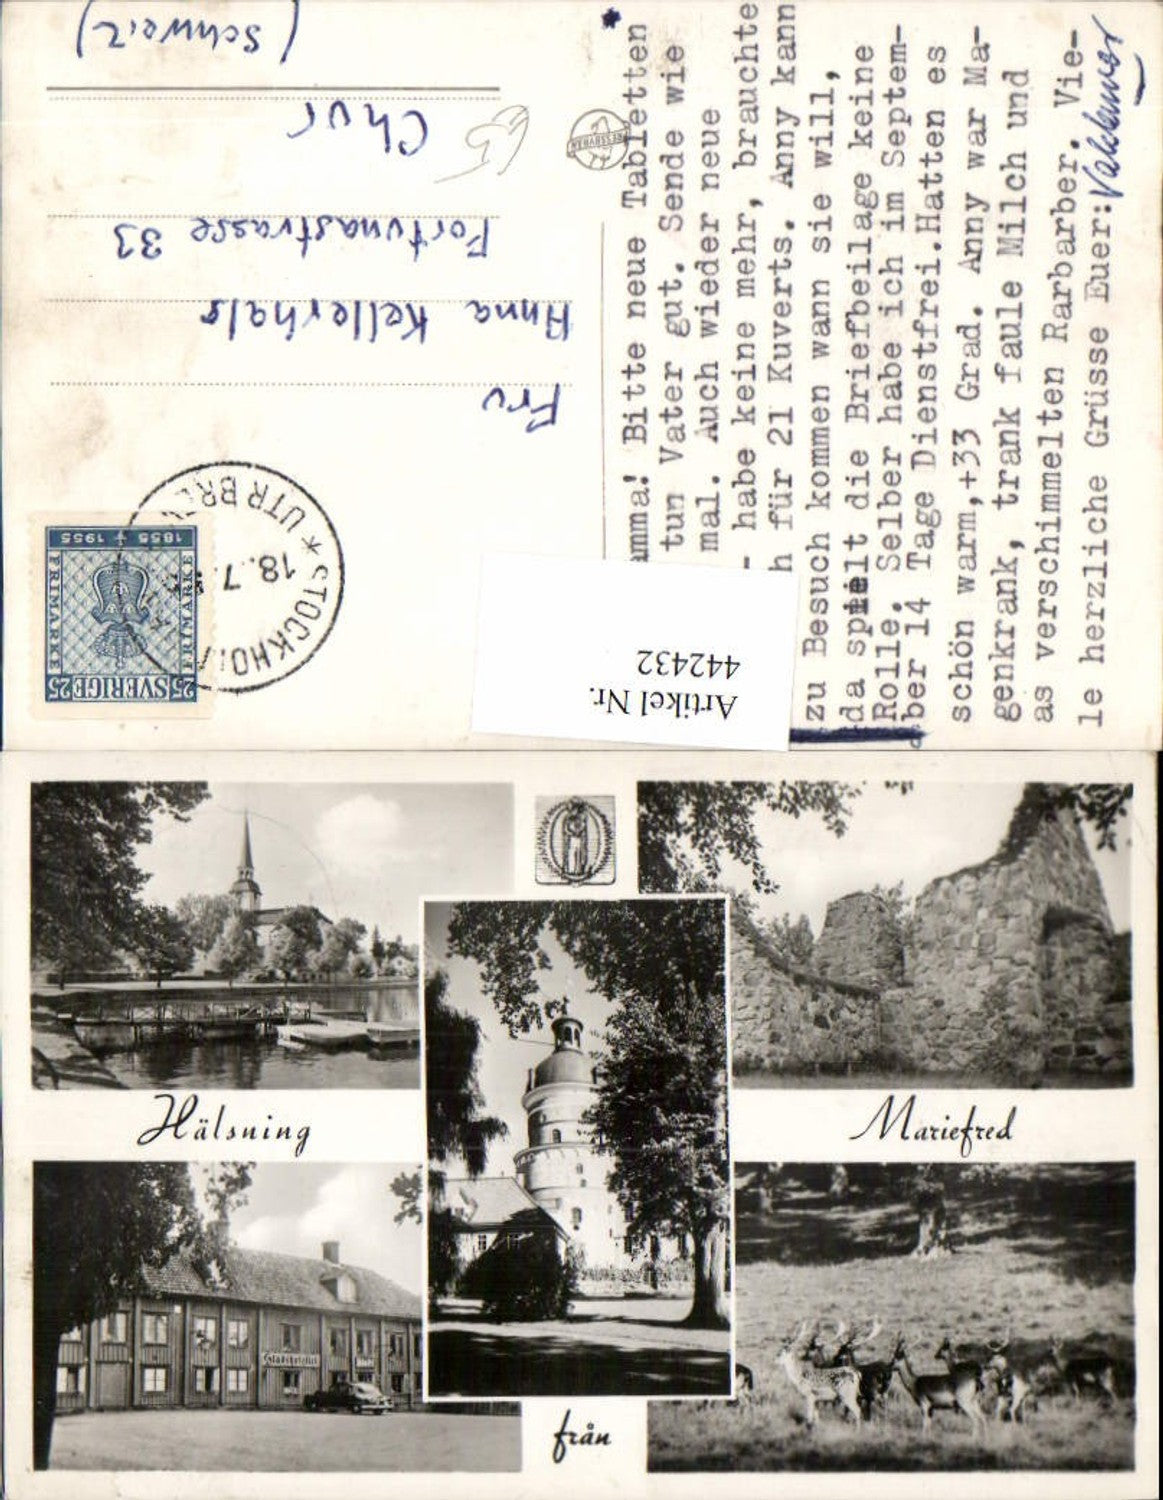 amma! Bitte neue Tabletten
tun Vater gut. Sende wie
mal. Auch wieder neue
- habe keine mehr, brauchte
h für 21 Kuverts. Anny kann
zu Besuch kommen wann sie will,
da spielt die Briefbeilage keine
Rolle. Selber habe ich im Septem-
ber 14 Tage Dienstfrei. Hatten es
schön warm, +33 Grad. Anny war Ma-
genkrank, trank faule Milch und
as verschimmelten Rarbarber. Vie-
le herzliche Grüsse Euer: Valdemar
Fru
Anna Kellerhals
Fortunastrasse 33
Chur
(Schweiz)
PRESSBYRÅN
SVERIGE 25
25
FRIMÄRKE
FRIMÄRKE
1855 1955
STOCKHOLM
UTR BREV
18.7.
Artikel Nr.
442432
Hälsning
Mariefred
från
Stadshotellet